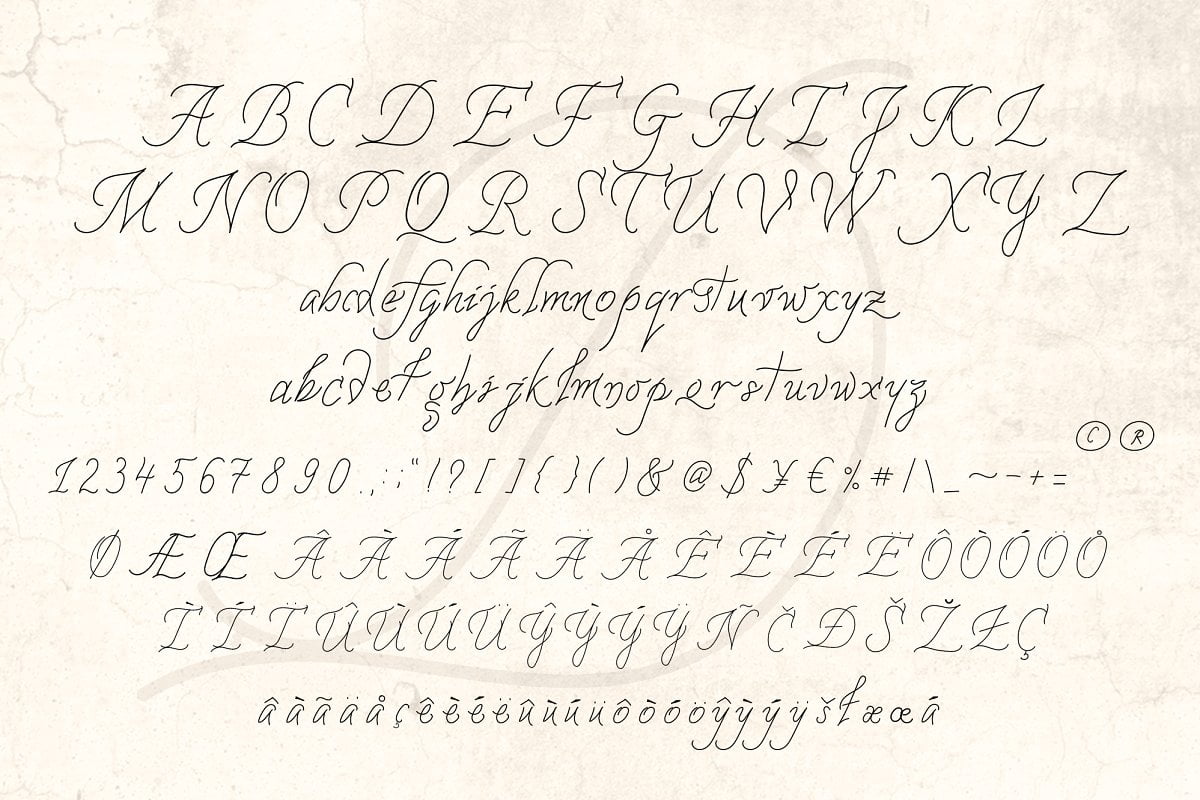 A B C D E F G H I J K L
M N O P Q R S T U V W X Y Z
abcdefghijklmnopqrstuvwxyz
abcdefghijklmnopqrstuvwxyz
© ®
1 2 3 4 5 6 7 8 9 0 . , : ; " ! ? [ ] { } ( ) & @ $ ¥ € % # / \ _ ~ - + =
Ø Æ Œ Â À Á Ã Ä Å Ê È É Ë Ô Ò Ó Ö O̊
Ì Í Ï Û Ù Ú Ü Ŷ Ỳ Ý Ÿ Ñ Č Đ Š Ž Ł Ç
â à ã ä å ç ê è é ë û ù ú ü ô ò ó ö ŷ ỳ ý ÿ š ł æ œ á